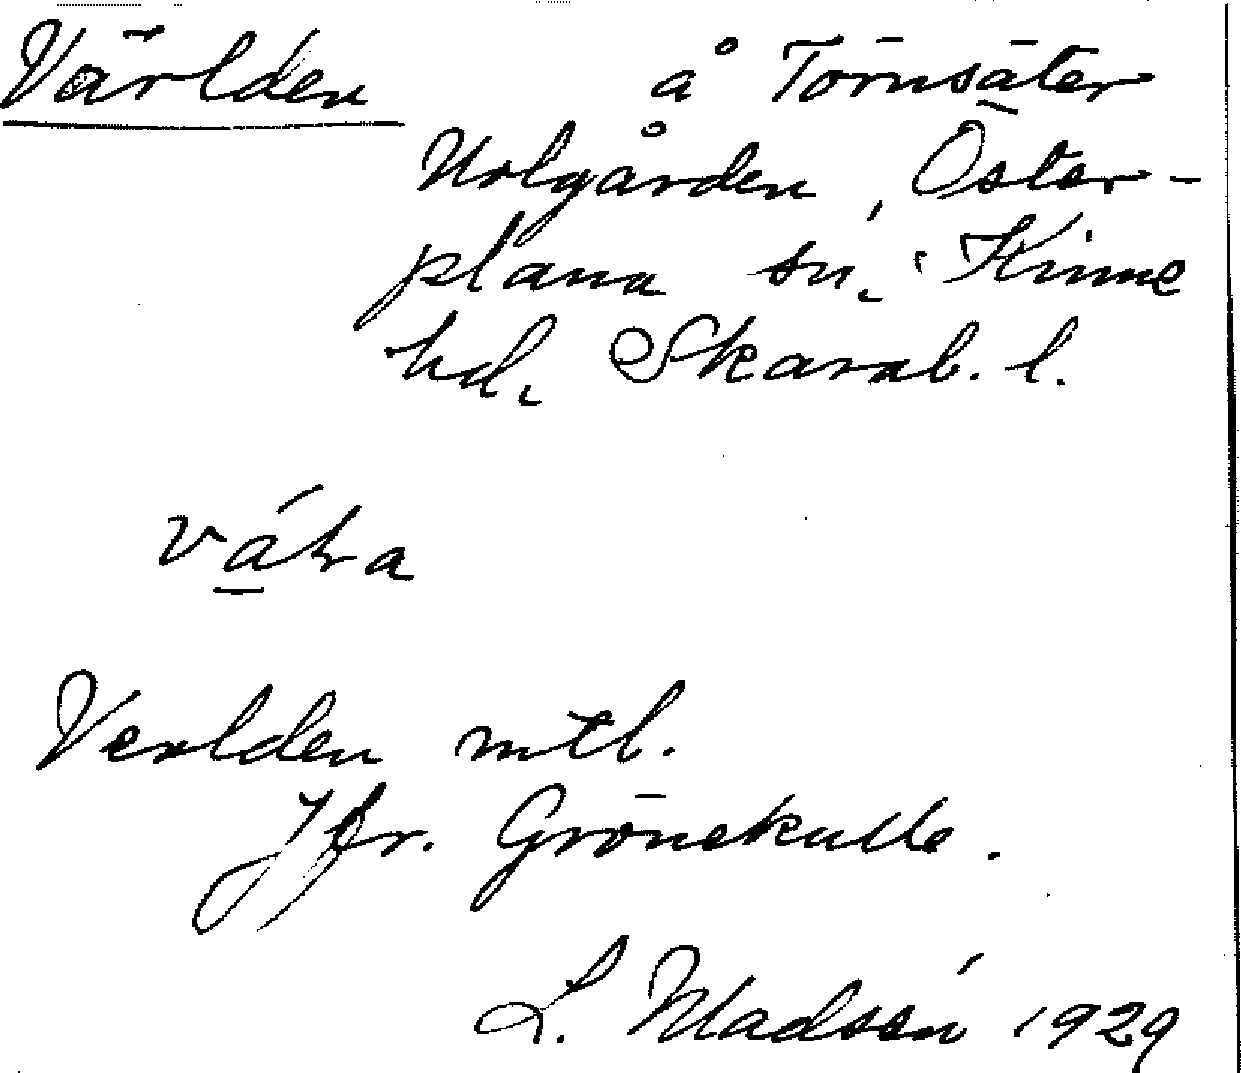 Världen å Törnsäter
Holgården, Öster-
plana sn, Kinne
hd, Skarab. l.
Verlden mtb.
Jfr. Grönekulle.
L. Madsén 1929